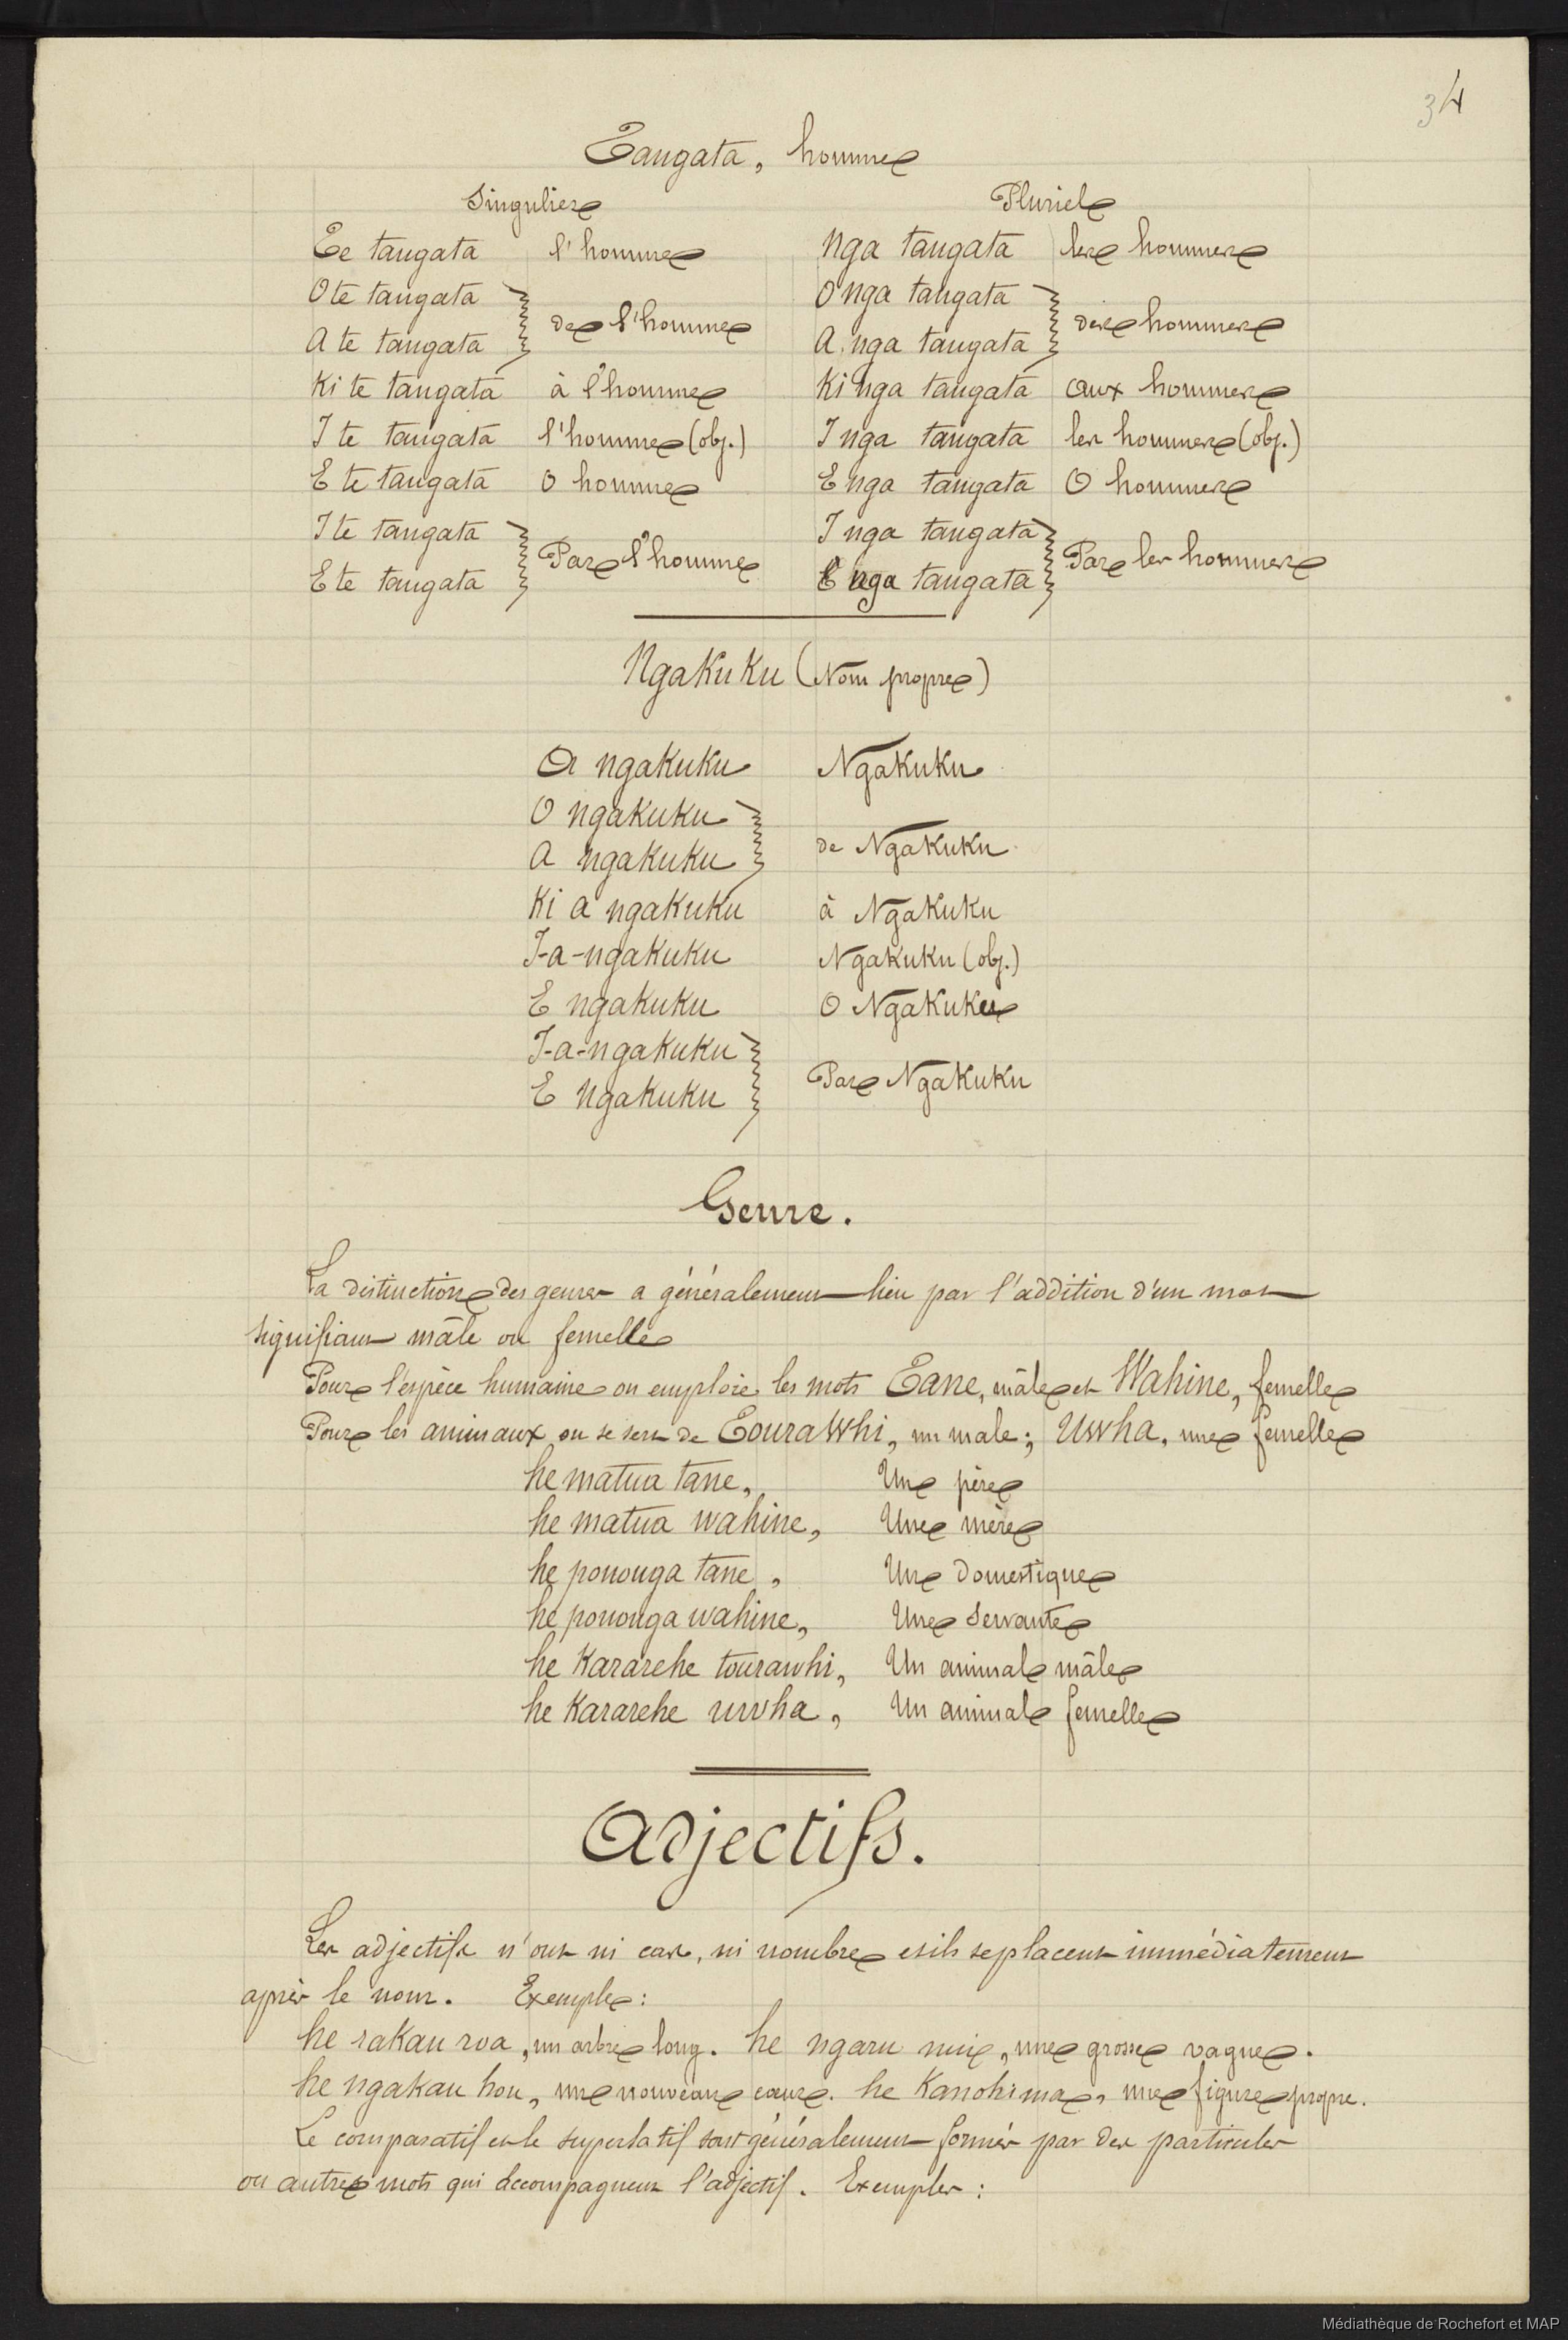 34
Tangata, homme
Singulier Pluriel
Te tangata l'homme Nga tangata les hommes
O te tangata O nga tangata
de l'homme des hommes
A te tangata A nga tangata
Ki te tangata à l'homme Ki nga tangata aux hommes
I te tangata l'homme (obj.) I nga tangata les hommes (obj.)
E te tangata O homme E nga tangata O hommes
I te tangata I nga tangata
Par l'homme Par les hommes
E te tangata E nga tangata
Ngakuku (Nom propre)
A ngakuku Ngakuku
O ngakuku
de Ngakuku
A ngakuku
Ki a ngakuku à Ngakuku
I-a-ngakuku Ngakuku (obj.)
E ngakuku O Ngakuku
I-a-ngakuku
Par Ngakuku
E ngakuku
Genre.
La distinction des genres a généralement lieu par l'addition d'un mot
signifiant mâle ou femelle
Pour l'espèce humaine on emploie les mots Tane, mâle et Wahine, femelle
Pour les animaux on se sert de Tourawhi, un male; Uwha, une femelle
he matua tane, Un père
he matua wahine, Une mère
he pononga tane, Un domestique
he pononga wahine, Une servante
he Kararehe tourawhi, Un animal mâle
he Kararehe uwha, Un animal femelle
Adjectifs.
Les adjectifs n'ont ni cas, ni nombre et ils se placent immédiatement
après le nom. Exemple:
he rakau roa, un arbre long. he ngaru nui, une grosse vague.
he ngakau hou, un nouveau cœur. he Kanohi ma, une figure propre.
Le comparatif et le superlatif sont généralement formés par des particules
ou autres mots qui accompagnent l'adjectif. Exemples:
Médiathèque de Rochefort et MAP